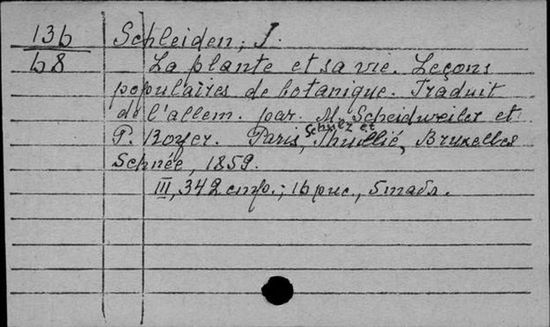 136
68
Schleiden, J.
La plante et sa vie. Leçons
populaires de botanique. Traduit
de l'allem. par M. Scheidweiler et
Schnez et
P. Royer. Paris, Thuillié, Bruxelles
Schnée, 1859.
III, 342 стр.; 16 рис., 5 табл.